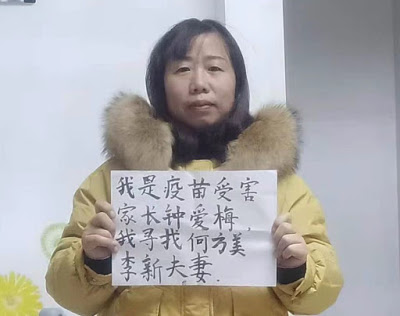 我是疫苗受害
家长钟爱梅,
我寻找何方美
李新夫妻.